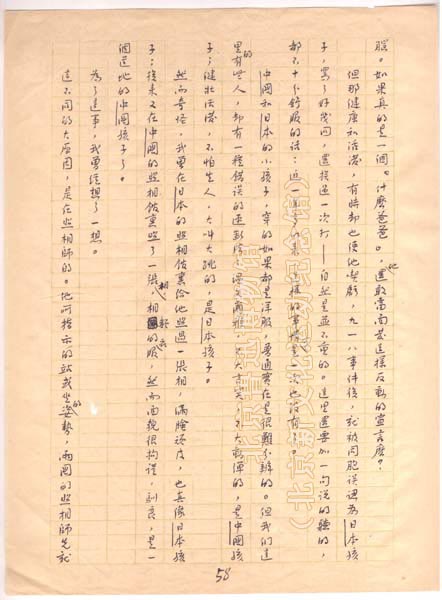 服。如果真的是一個“什麼爸爸”,他還敢當面發這樣反動的宣言麼?
但那健康和活潑,有時却也使他喫虧,九一八事件後,就被同胞誤認為日本孩
子,罵了好幾回,還挨過一次打——自然是並不重的。這里還要加一句說的聽的,
都不十分舒服的話:近一年多以來,這樣的事情可是一次也沒有了。
中國和日本的小孩子,穿的如果都是洋服,普通實在是很難分辨的。但我們這
里的有些人,却有一種錯誤的速斷法:溫文爾雅,不大言笑,不大動彈的,是中國孩
子;健壯活潑,不怕生人,大叫大跳的,是日本孩子。
然而奇怪,我曾在日本的照相館裏給他照過一張相,滿臉頑皮,也真像日本孩
子;後來又在中國的照相館裏照了一張相,相類的衣服,然而面貌很拘謹,馴良,是一
個道地的中國孩子了。
為了這事,我曾經想了一想。
這不同的大原因,是在照相師的。他所指示的站或坐的姿勢,兩國的照相師先就
58
北京鲁迅博物馆
(北京新文化运动纪念馆)